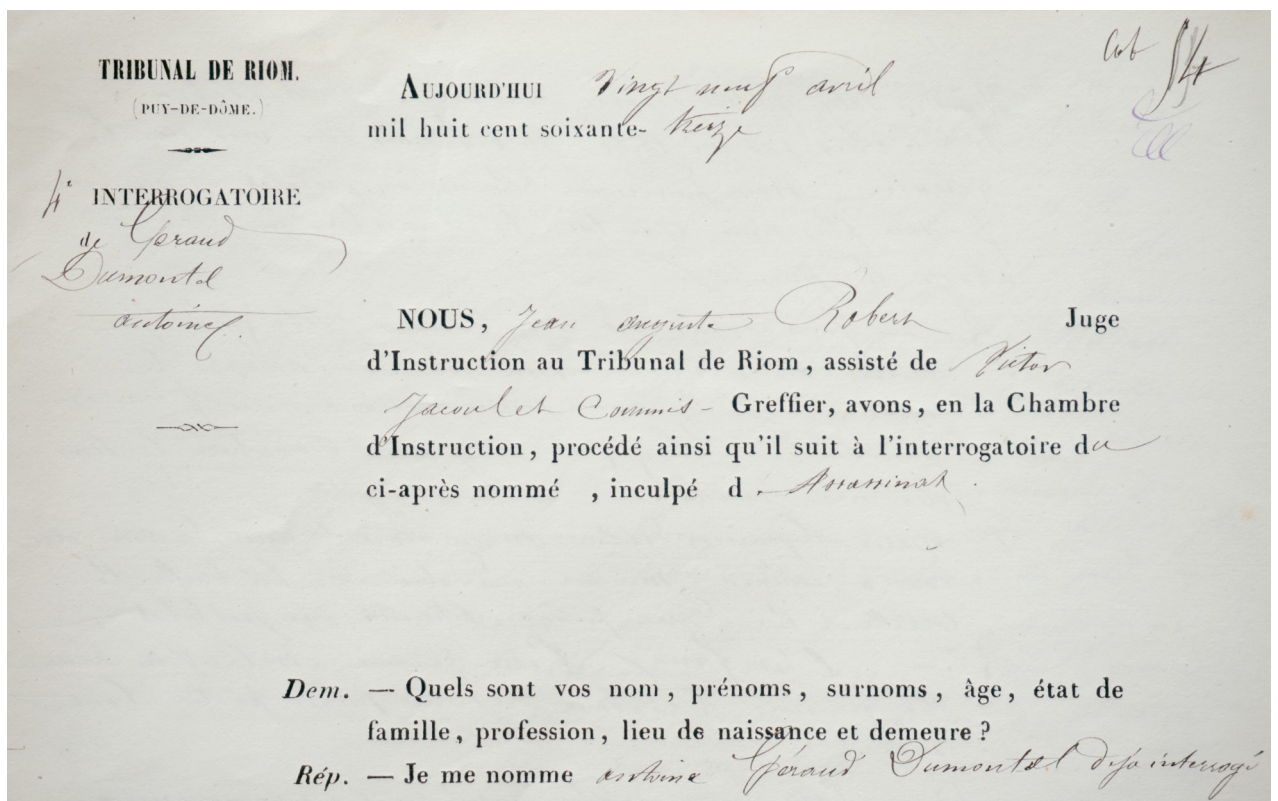 TRIBUNAL DE RIOM.
(PUY-DE-DÔME.)
4e INTERROGATOIRE
de Géraud
Dumontel
antoine.
Cot 54
AUJOURD'HUI Vingt neuf avril
mil huit cent soixante- treize
NOUS, Jean auguste Robert Juge
d'Instruction au Tribunal de Riom, assisté de Victor
Jacoulet Commis- Greffier, avons, en la Chambre
d'Instruction, procédé ainsi qu'il suit à l'interrogatoire du
ci-après nommé , inculpé d. Assassinat.
Dem. — Quels sont vos nom, prénoms, surnoms, âge, état de
famille, profession, lieu de naissance et demeure ?
Rép. — Je me nomme antoine Géraud Dumontel deja interrogé